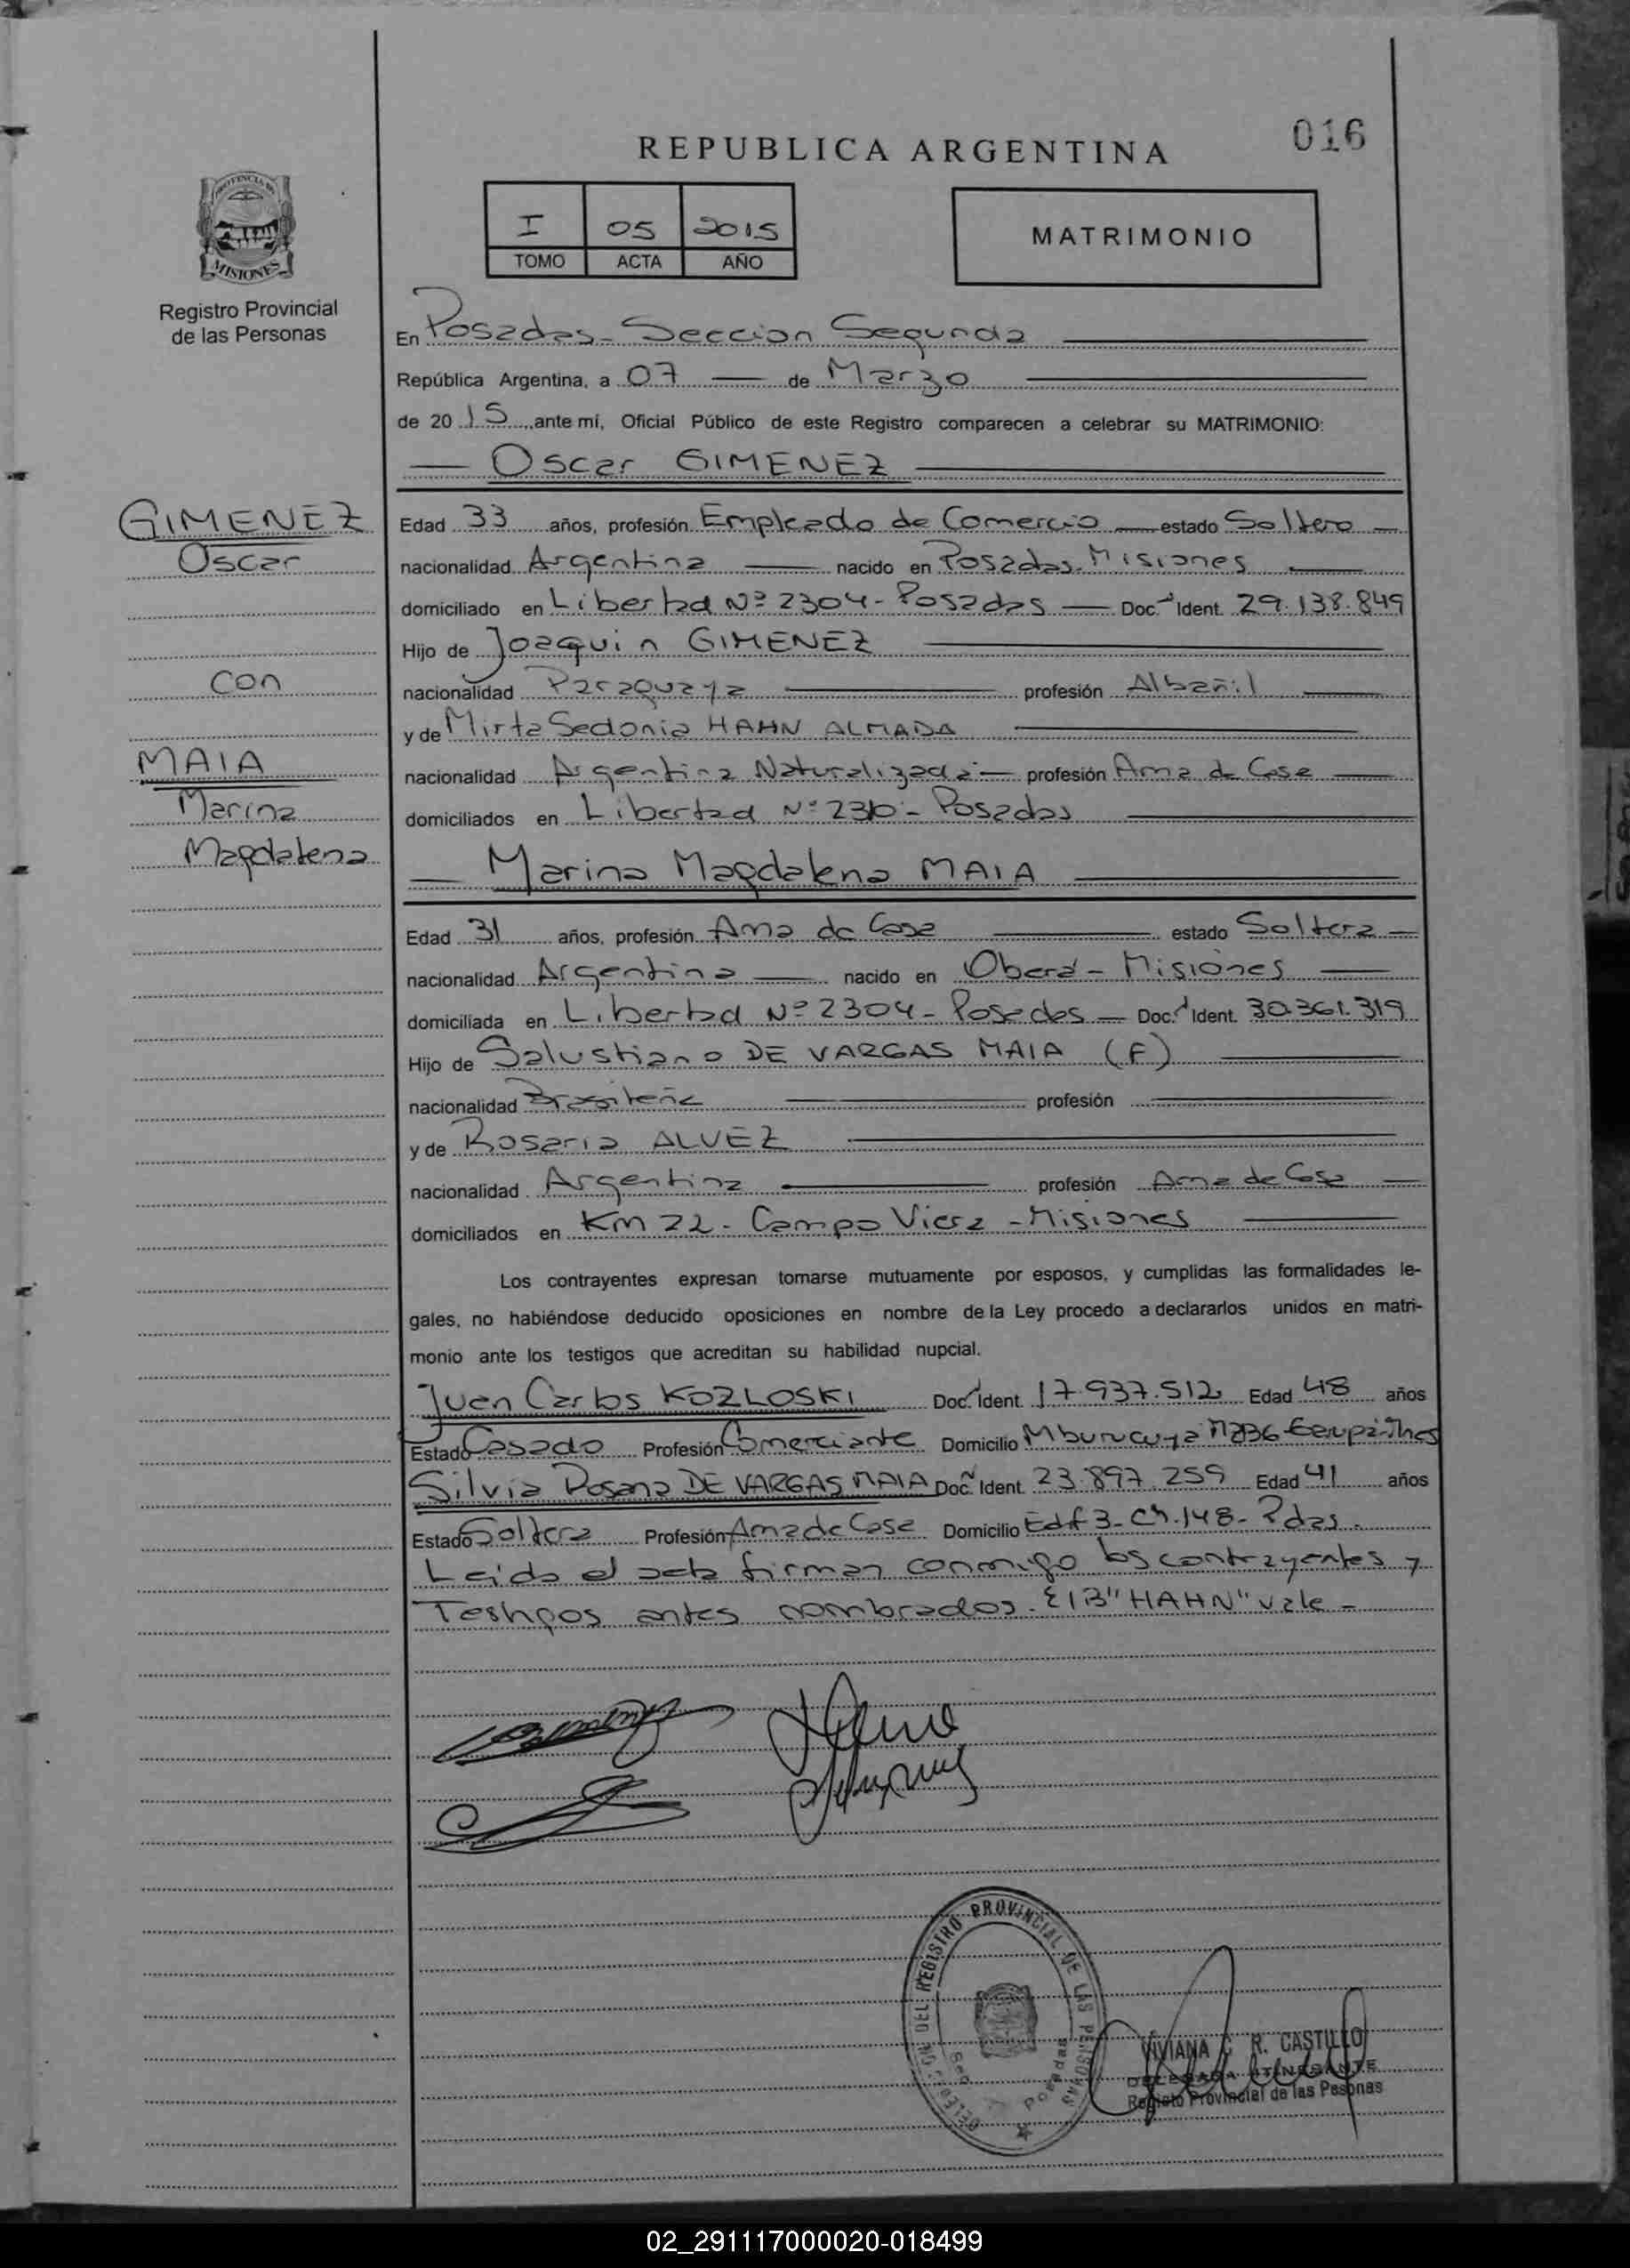 016
REPUBLICA ARGENTINA
I 05 2015
TOMO ACTA AÑO
MATRIMONIO
PROVINCIA DE
MISIONES
Registro Provincial
de las Personas
En Posadas - Seccion Segunda
República Argentina, a 07 de Marzo
de 20 15 ,ante mí, Oficial Público de este Registro comparecen a celebrar su MATRIMONIO:
Oscar GIMENEZ
GIMENEZ
Oscar
con
MAIA
Marina
Magdalena
Edad 33 años, profesión Empleado de Comercio estado Soltero
nacionalidad Argentina nacido en Posadas - Misiones
domiciliado en Libertad Nº 2304 - Posadas Doc. Ident. 29.138.849
Hijo de Joaquin GIMENEZ
nacionalidad Paraguaya profesión Albañil
y de Mirta Sedonia HAHN ALMADA
nacionalidad Argentina Naturalizada profesión Ama de Casa
domiciliados en Libertad Nº 2310 - Posadas
Marina Magdalena MAIA
Edad 31 años, profesión Ama de Casa estado Soltera
nacionalidad Argentina nacido en Oberá - Misiones
domiciliada en Libertad Nº 2304 - Posadas Doc. Ident. 30.361.319
Hijo de Salustiano DE VARGAS MAIA (F)
nacionalidad Brasileña profesión
y de Rosaria ALVEZ
nacionalidad Argentina profesión Ama de Casa
domiciliados en Km 22 - Campo Viera - Misiones
Los contrayentes expresan tomarse mutuamente por esposos, y cumplidas las formalidades le-
gales, no habiéndose deducido oposiciones en nombre de la Ley procedo a declararlos unidos en matri-
monio ante los testigos que acreditan su habilidad nupcial.
Juan Carlos KOZLOSKI Doc. Ident. 17.937.512 Edad 48 años
Estado Casado Profesión Comerciante Domicilio Mburucuya
Silvia Rosana DE VARGAS MAIA Doc. Ident. 23.897.259 Edad 41 años
Estado Soltera Profesión Ama de Casa Domicilio Edf 3 - Ch. 148 - Pdas.
Leida el acta firman conmigo los contrayentes y
Testigos antes nombrados. E/B "HAHN" vale -
DELEGACION DEL REGISTRO PROVINCIAL DE LAS PERSONAS
Posadas
VIVIANA C. R. CASTILLO
DELEGADA ITINERANTE
Registo Provincial de las Pesonas
02_291117000020-018499